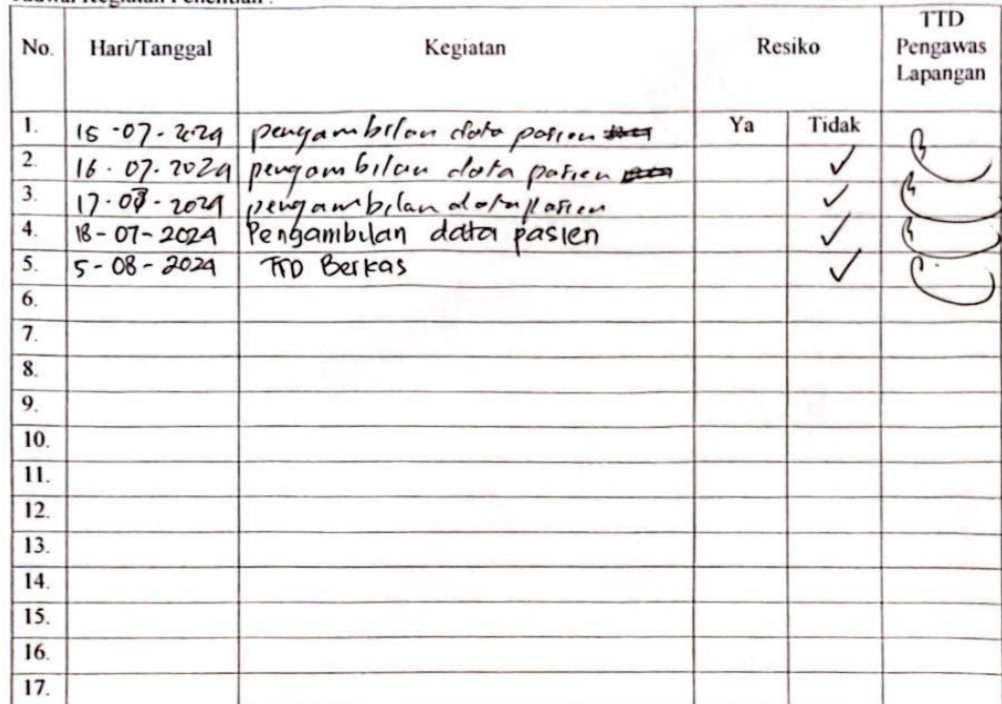 Jadwal Kegiatan Penelitian :
No. Hari/Tanggal Kegiatan Resiko TTD Pengawas Lapangan
1. 15-07-2024 pengambilan data pasien Ya Tidak
2. 16.07.2024 pengambilan data pasien ✓
3. 17.07-2024 pengambilan data pasien ✓
4. 18-07-2024 Pengambilan data pasien ✓
5. 5-08-2024 TTD Berkas ✓
6.
7.
8.
9.
10.
11.
12.
13.
14.
15.
16.
17.